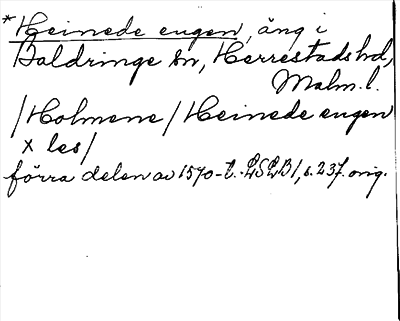 *Heinede eugen, äng i
Baldringe sn, Herrestads hd,
Malm. l.
/Holmene/ Heinede eugen
x les/
förra delen av 1570-t. LSLB1, s. 237. orig.